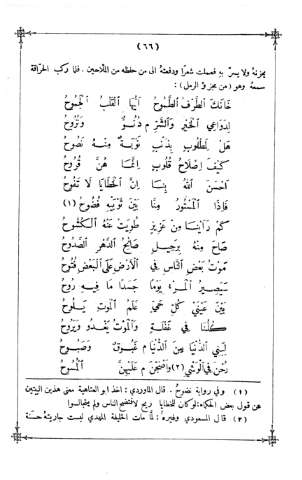 (٦٦)
يحزنهُ ولا يسرّ بهِ فعملت شعرًا ودفعتهُ الى من حفظهُ من الملاحين. فلما ركب الحراقة
سمعهُ وهو (من مجزوء الرمل):
خَانَكَ الطَّرْفُ الطَّمُوحُ أَيُّهَا القَلْبُ الجَمُوحُ
لِدَوَاعِي الخَيْرِ وَالشَّرِّ م دُنُوٌّ وَنُزُوحُ
هَلْ لِمَطْلُوبٍ بِذَنْبٍ تَوْبَةٌ مِنْهُ نَصُوحُ
كَيْفَ إِصْلَاحُ قُلُوبٍ إِنَّمَا هُنَّ قُرُوحُ
أَحْسَنَ اللهُ بِنَا إِنَّ الخَطَايَا لَا تَفُوحُ
فَإِذَا المَسْتُورُ مِنَّا بَيْنَ ثَوْبَيْهِ فُضُوحُ (١)
كَمْ رَأَيْنَا مِنْ عَزِيزٍ طُوِيَتْ عَنْهُ الكُشُوحُ
صَاحَ مِنْهُ بِرَحِيلٍ صَائِحُ الدَّهْرِ الصَّدُوحُ
مَوْتُ بَعْضِ النَّاسِ فِي الأَرْضِ عَلَى البَعْضِ فُتُوحُ
سَيَصِيرُ المَرْءُ يَوْمًا جَسَدًا مَا فِيهِ رُوحُ
بَيْنَ عَيْنَيْ كُلِّ حَيٍّ عَلَمُ المَوْتِ يَلُوحُ
كُلُّنَا فِي غَفْلَةٍ وَالمَوْتُ يَغْدُو وَيَرُوحُ
لِبَنِي الدُّنْيَا مِنَ الدُّنْيَا م غَبُوقٌ وَصَبُوحُ
رُحْنَ فِي الوَشْيِ (٢) وَأَصْبَحْنَ م عَلَيْهِنَّ المُسُوحُ
(١) وفي رواية فضوح. قال الماوردي: اخذ ابو العتاهية معنى هذين البيتين
من قول بعض الحكماء: لو كان للخطايا ريح لافتضح الناس ولم يتجالسوا
(٢) قال المسعودي وغيره: لمّا مات الخليفة المهدي لبست جاريتهُ حسنة